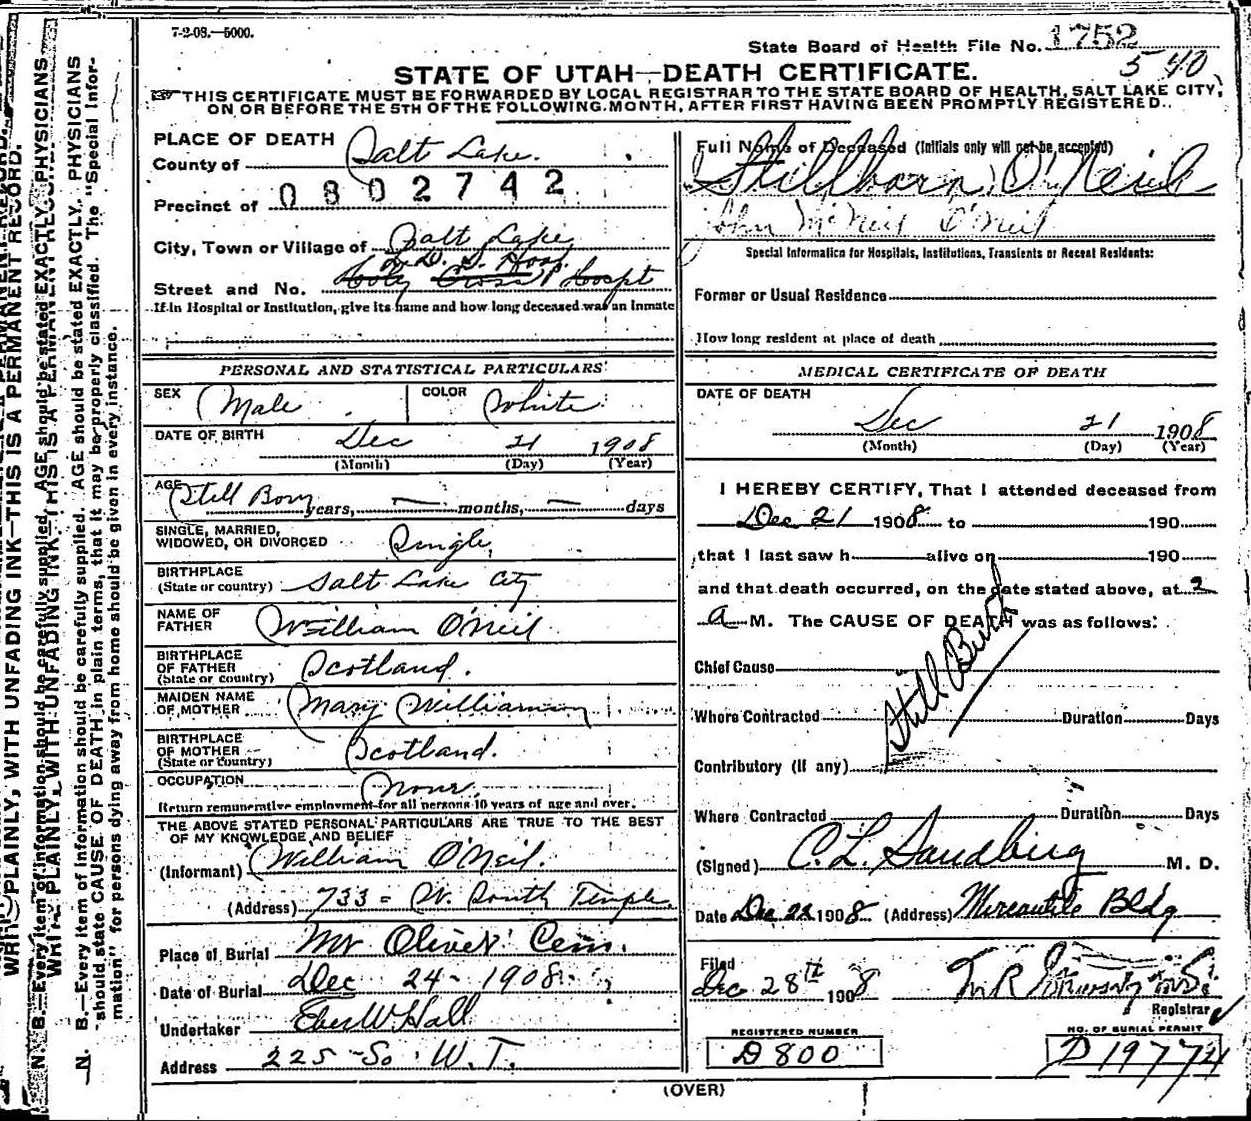 7-2-08.—5000.
State Board of Health File No. 1752
540
STATE OF UTAH—DEATH CERTIFICATE.
THIS CERTIFICATE MUST BE FORWARDED BY LOCAL REGISTRAR TO THE STATE BOARD OF HEALTH, SALT LAKE CITY,
ON OR BEFORE THE 5TH OF THE FOLLOWING MONTH, AFTER FIRST HAVING BEEN PROMPTLY REGISTERED.
PLACE OF DEATH
County of Salt Lake.
0802742
Precinct of
City, Town or Village of Salt Lake
L. D. S. Hosp.
Street and No. Holy Cross Hospt
If in Hospital or Institution, give its name and how long deceased was an Inmate
Full Name of Deceased (Initials only will not be accepted)
Stillborn O'Neil
John McNeil O'Neil
Special Information for Hospitals, Institutions, Transients or Recent Residents:
Former or Usual Residence
How long resident at place of death
PERSONAL AND STATISTICAL PARTICULARS
SEX Male COLOR White
DATE OF BIRTH Dec 21 1908
(Month) (Day) (Year)
AGE Still Born years, — months, — days
SINGLE, MARRIED,
WIDOWED, OR DIVORCED Single
BIRTHPLACE
(State or country) Salt Lake City
NAME OF
FATHER William O'Neil
BIRTHPLACE
OF FATHER
(State or country) Scotland.
MAIDEN NAME
OF MOTHER Mary Williamson
BIRTHPLACE
OF MOTHER
(State or country) Scotland.
OCCUPATION None.
Return remunerative employment for all persons 10 years of age and over.
THE ABOVE STATED PERSONAL PARTICULARS ARE TRUE TO THE BEST
OF MY KNOWLEDGE AND BELIEF
(Informant) William O'Neil.
(Address) 733 - W. South Temple
Place of Burial Mt Olivet Cem.
Date of Burial Dec 24 - 1908
Undertaker Eber W Hall
Address 225 So. W. T.
MEDICAL CERTIFICATE OF DEATH
DATE OF DEATH
Dec 21 1908
(Month) (Day) (Year)
I HEREBY CERTIFY, That I attended deceased from
Dec 21 1908 to 190
that I last saw h alive on 190
and that death occurred, on the date stated above, at 2
a M. The CAUSE OF DEATH was as follows:
Still Birth
Chief Cause
Where Contracted Duration Days
Contributory (if any)
Where Contracted Duration Days
(Signed) C. L. Sandberg M. D.
Date Dec 22 1908 (Address) Mercantile Bldg
Filed
Dec 28th 1908
Registrar
REGISTERED NUMBER
D 800
NO. OF BURIAL PERMIT
D 19774
(OVER)
WRITE PLAINLY, WITH UNFADING INK—THIS IS A PERMANENT RECORD.
N. B.—Every item of information should be carefully supplied. AGE should be stated EXACTLY. PHYSICIANS
should state CAUSE OF DEATH in plain terms, that it may be properly classified. The "Special Infor-
mation" for persons dying away from home should be given in every instance.